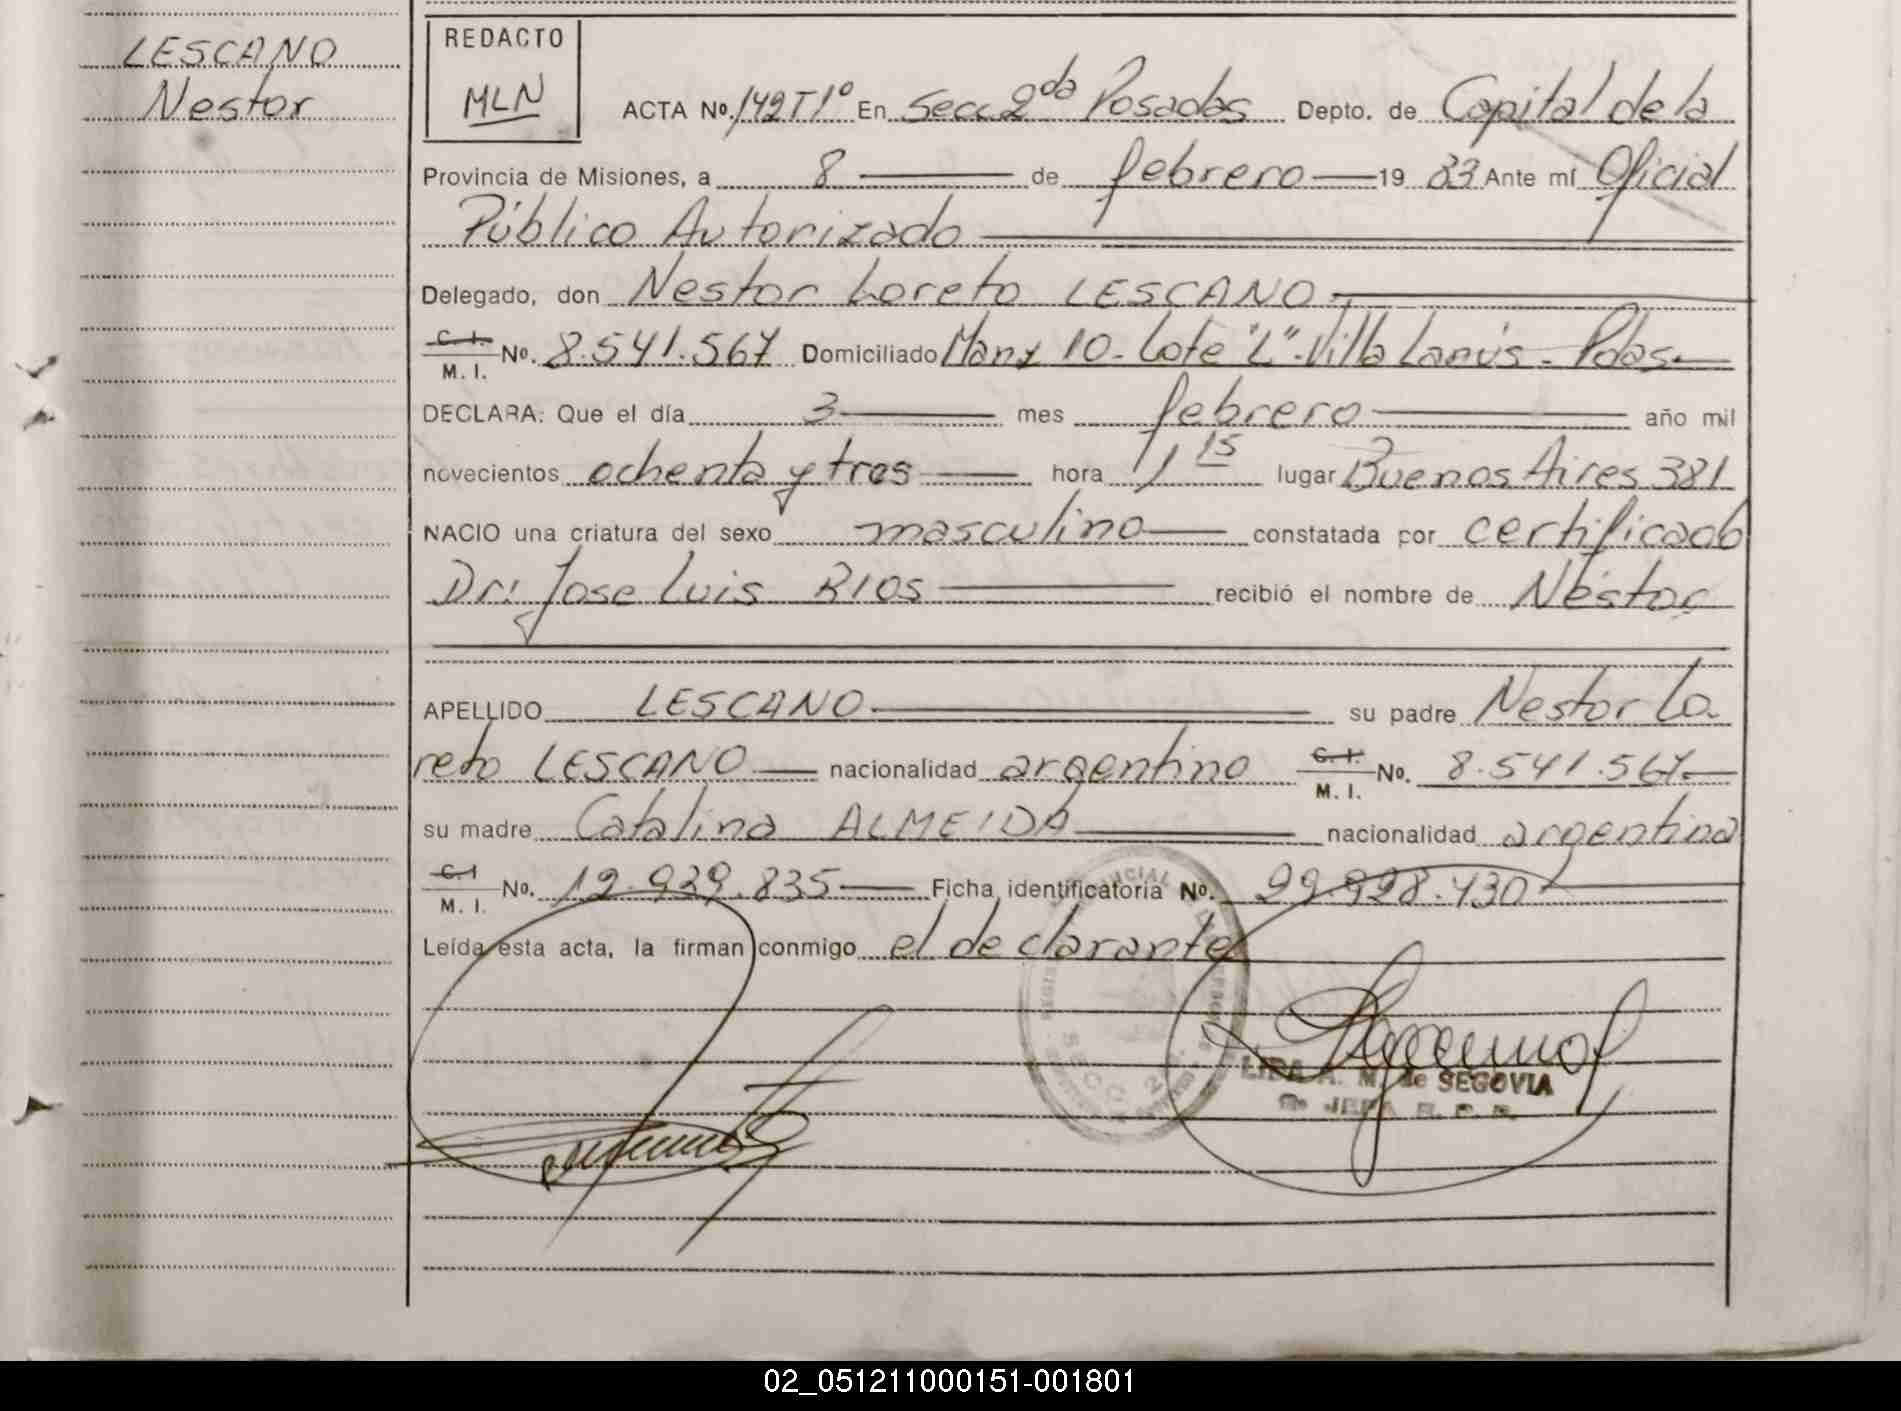 LESCANO
Nestor
REDACTO
MLN
ACTA Nº. 142 T1º En Secc. 2da Posadas Depto. de Capital de la
Provincia de Misiones, a 8 de febrero 19 83 Ante mí Oficial
Público Autorizado
Delegado, don Nestor Loreto LESCANO
C. I. M. I. Nº. 8.541.567 Domiciliado Manz 10 - Lote "L" - Villa Lanús - Pdas.
DECLARA: Que el día 3 mes febrero año mil
novecientos ochenta y tres hora 1 15 lugar Buenos Aires 381
NACIO una criatura del sexo masculino constatada por certificado
Dr: Jose Luis RIOS recibió el nombre de Néstor
APELLIDO LESCANO su padre Nestor Lo
reto LESCANO nacionalidad argentino C. I. M. I. Nº. 8.541.567
su madre Catalina ALMEIDA nacionalidad argentina
C. I M. I. Nº. 12.939.835 Ficha identificatoria Nº. 29.998.430
Leída esta acta, la firman conmigo el declarante
SECC 2
LIDA A. M. de SEGOVIA
02_051211000151-001801